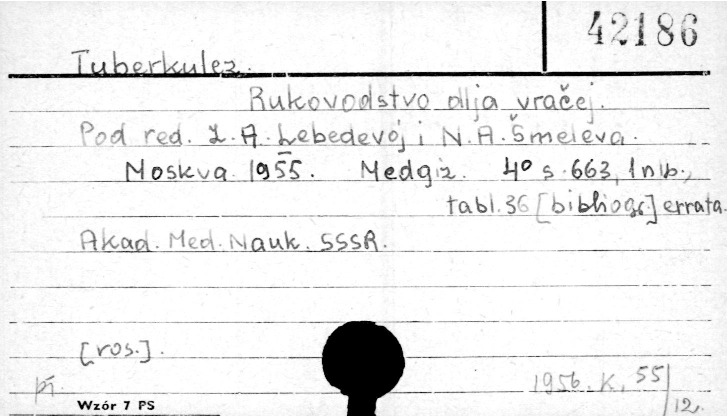 42186
Tuberkulez.
Rukovodstvo dlja vračej.
Pod red. Z. A. Lebedevoj i N. A. Šmeleva.
Moskva 1955. Medgiz. 4° s. 663, 1 nlb.,
tabl. 36 [bibliogr.] errata.
Akad. Med. Nauk. SSSR.
[ros.].
pi. 1956. K. 55/12.
Wzór 7 PS